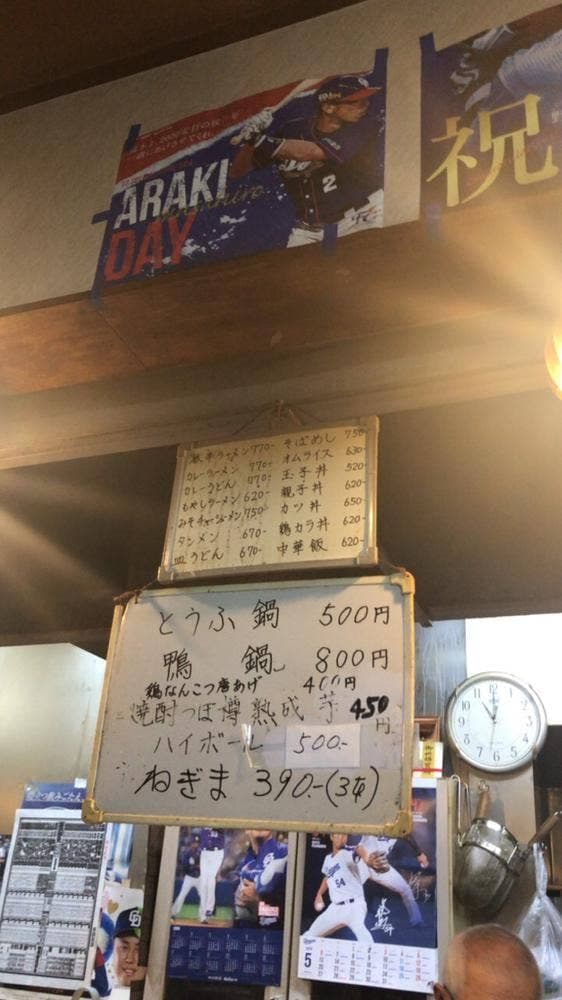 ARAKI
DAY
2
祝
激辛ラーメン 770-
カレーラーメン 770-
カレーうどん 770-
もやしラーメン 620-
みそチャーシューメン 750-
タンメン 670-
皿うどん 670-
そばめし 750-
オムライス 630-
玉子丼 520-
親子丼 620-
カツ丼 650-
鶏カラ丼 620-
中華飯 620-
とうふ鍋 500円
鴨鍋 800円
鶏なんこつ唐あげ 400円
焼酎つぼ樽熟成 芋 450円
ハイボール 500.-
ねぎま 390.-(3本)
12
1
2
3
4
5
6
7
8
9
10
11
54
5